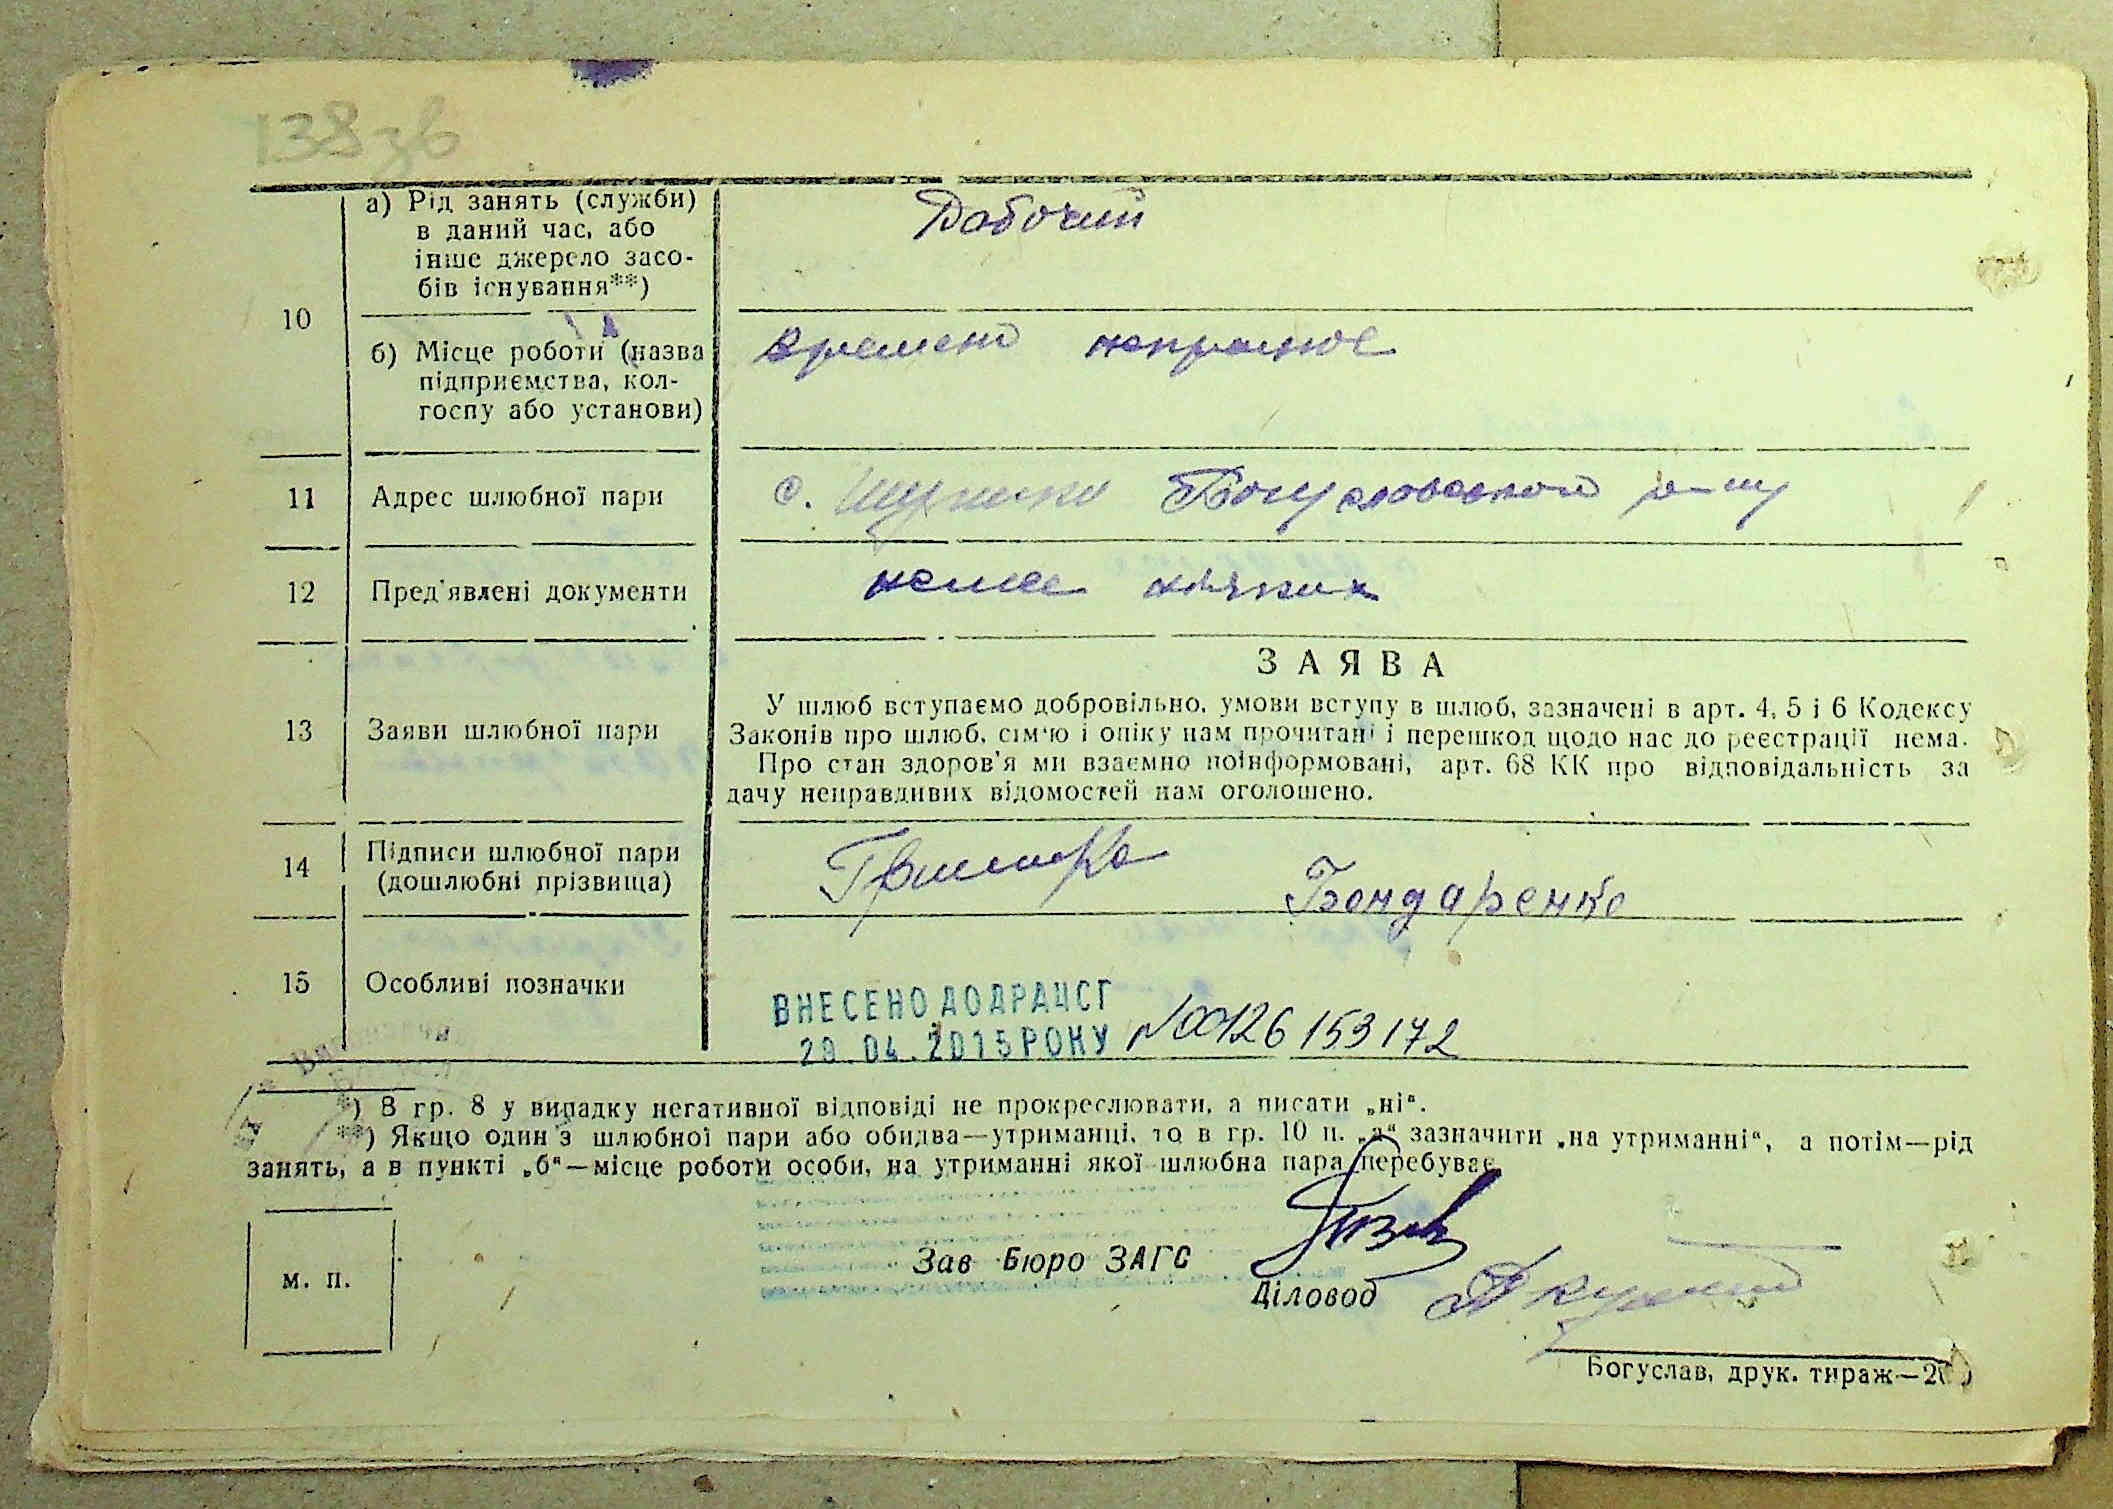 138 зв
10
а) Рід занять (служби)
в даний час, або
інше джерело засо-
бів існування**)
Рабочий
б) Місце роботи (назва
підприємства, кол-
госпу або установи)
времено
11
Адрес шлюбної пари
с. Богуславского р-ну
12
Пред'явлені документи
немає ніяких
13
Заяви шлюбної пари
ЗАЯВА
У шлюб вступаємо добровільно, умови вступу в шлюб, зазначені в арт. 4, 5 і 6 Кодексу
Законів про шлюб, сім'ю і опіку нам прочитані і перешкод щодо нас до реєстрації нема.
Про стан здоров'я ми взаємно поінформовані, арт. 68 КК про відповідальність за
дачу неправдивих відомостей нам оголошено.
14
Підписи шлюбної пари
(дошлюбні прізвища)
Бондаренко
15
Особливі позначки
ВНЕСЕНО ДО ДРАЦСГ
29.04.2015 РОКУ №00126153172
*) В гр. 8 у випадку негативної відповіді не прокреслювати, а писати „ні“.
**) Якщо один з шлюбної пари або обидва—утриманці, то в гр. 10 п. „а“ зазначити „на утриманні“, а потім—рід
занять, а в пункті „б“—місце роботи особи, на утриманні якої шлюбна пара перебуває
м. п.
Зав Бюро ЗАГС
Діловод
Богуслав, друк. тираж—2